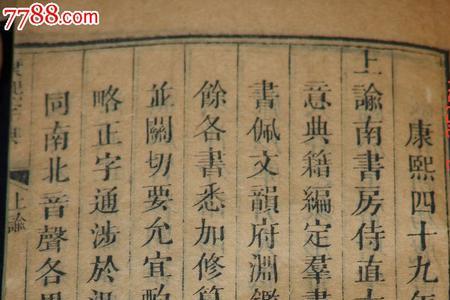 7788.com
康熙四十九年
上諭南書房侍直
意典籍編定羣書
書佩文韻府淵鑑
餘各書悉加修
並關切要允宜酌
略正字通涉於
同南北音聲各
熙字典
上諭